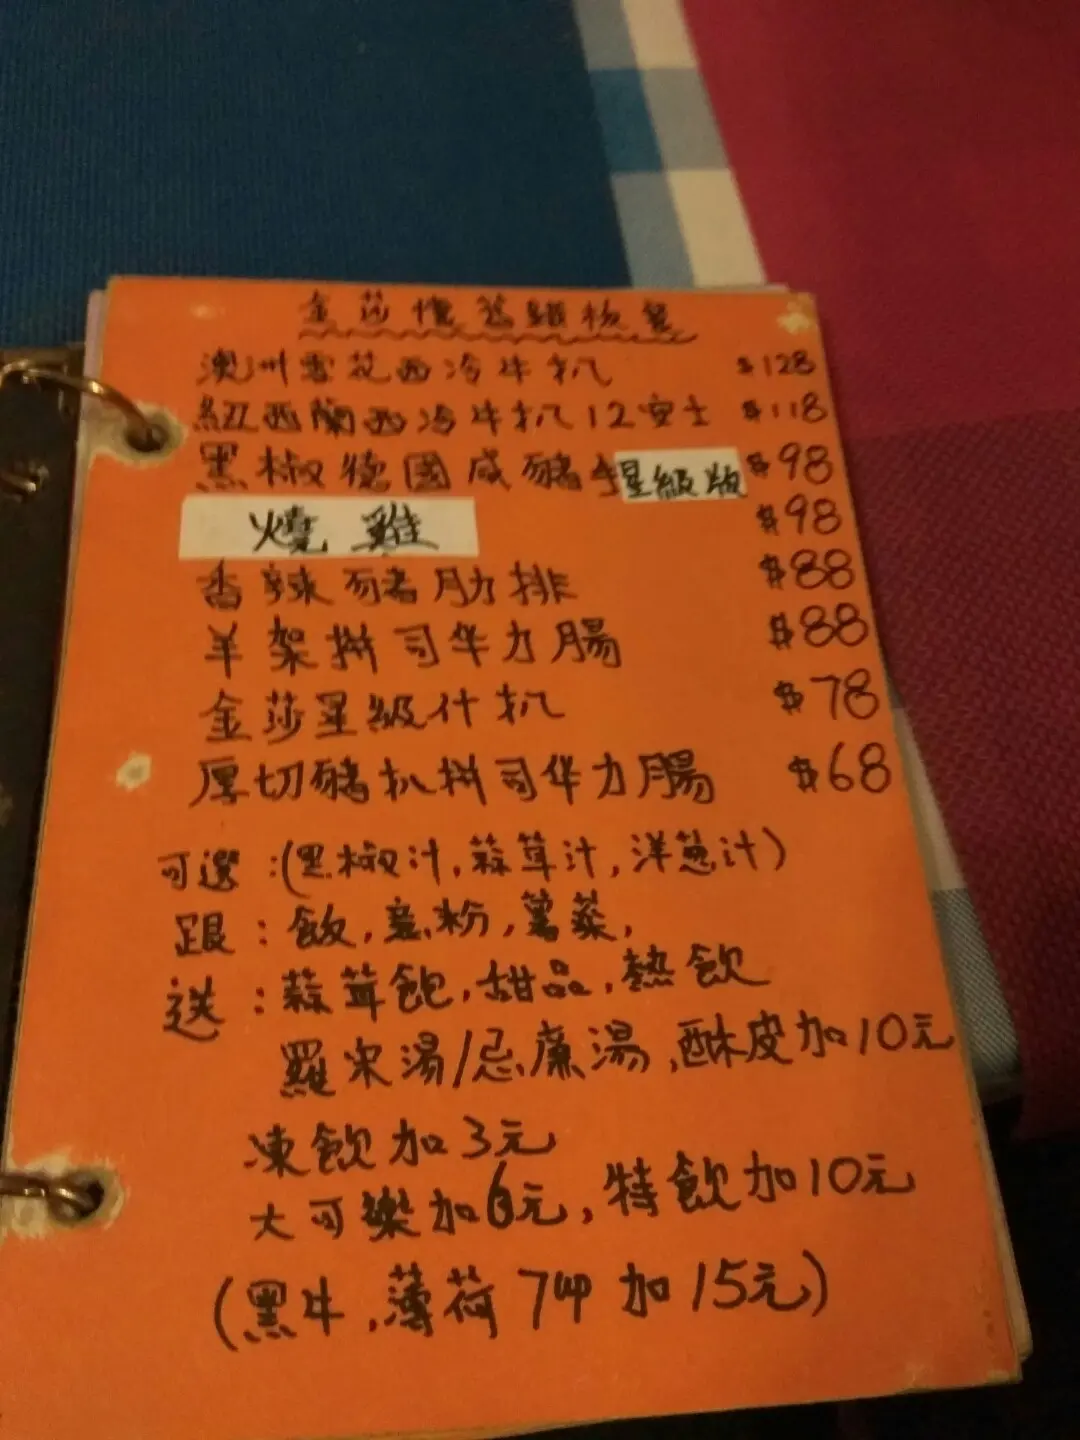 金莎懷舊鐵板餐
澳洲雪花西冷牛扒 $128
紐西蘭西冷牛扒12安士 $118
黑椒德國咸豬手星級版 $98
燒雞 $98
香辣豬肋排 $88
羊架拼司华力腸 $88
金莎星級什扒 $78
厚切豬扒拼司华力腸 $68
可選:(黑椒汁,蒜茸汁,洋葱汁)
跟:飯,意粉,薯菜,
送:蒜茸飽,甜品,熱飲
羅宋湯/忌廉湯,酥皮加10元
凍飲加3元
大可樂加6元,特飲加10元
(黑牛,薄荷7 加15元)